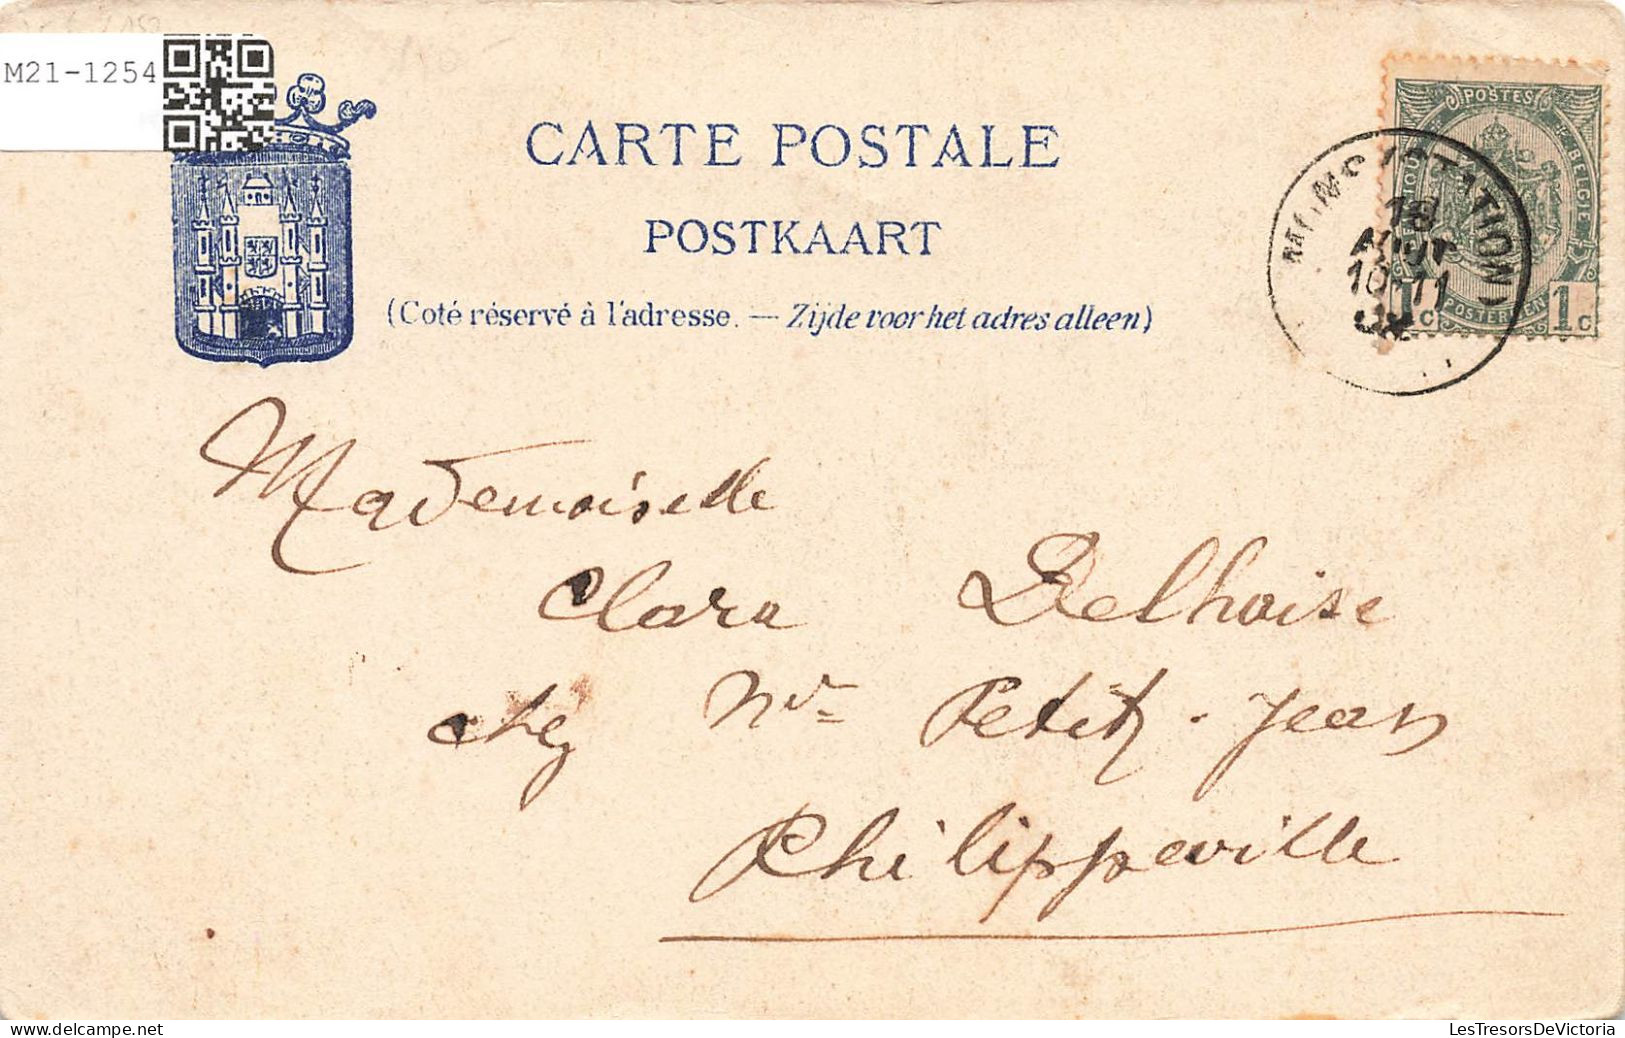 M21-1254
CARTE POSTALE
POSTKAART
(Coté réservé à l'adresse. — Zijde voor het adres alleen)
POSTES
BELGIE
POSTERIJEN
1c 1c
(STATION)
18
AOUT
10-11
Mademoiselle
Clara Delhaise
chez Mr Petit-Jean
Philippeville
LesTresorsDeVictoria
delcampe.net